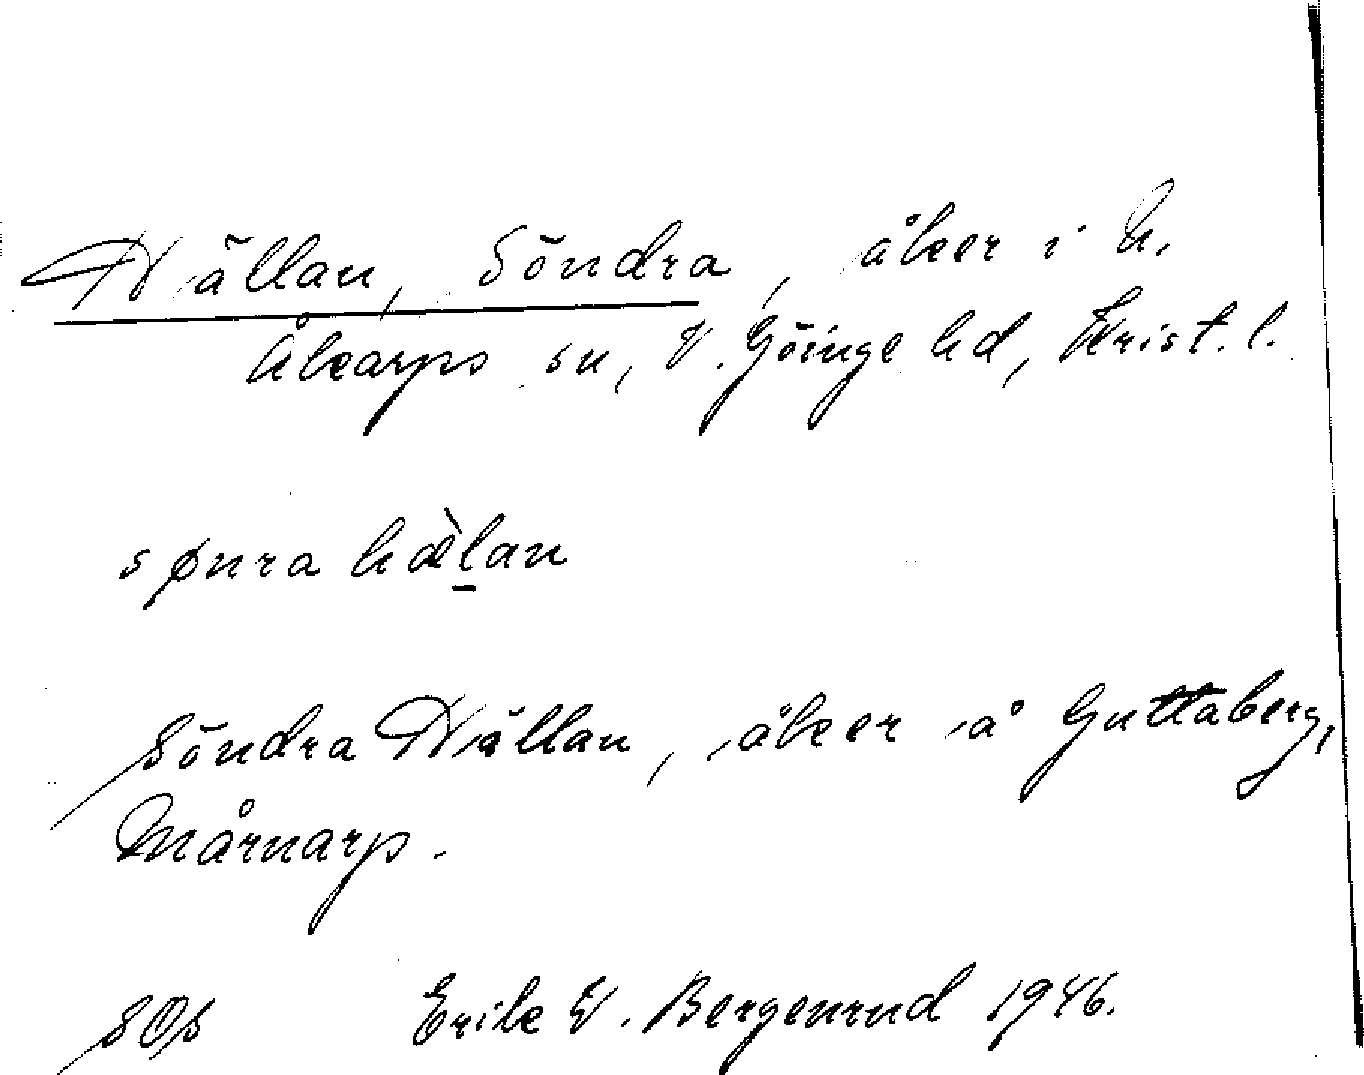 Hällan, Söndra, åker i N.
Åkarps sn, V. Göinge hd, Krist. l.
sønra hælan
Söndra Hällan, åker å Guttaberg,
Mårnarp.
SOS Erik W. Bergenrud 1946.